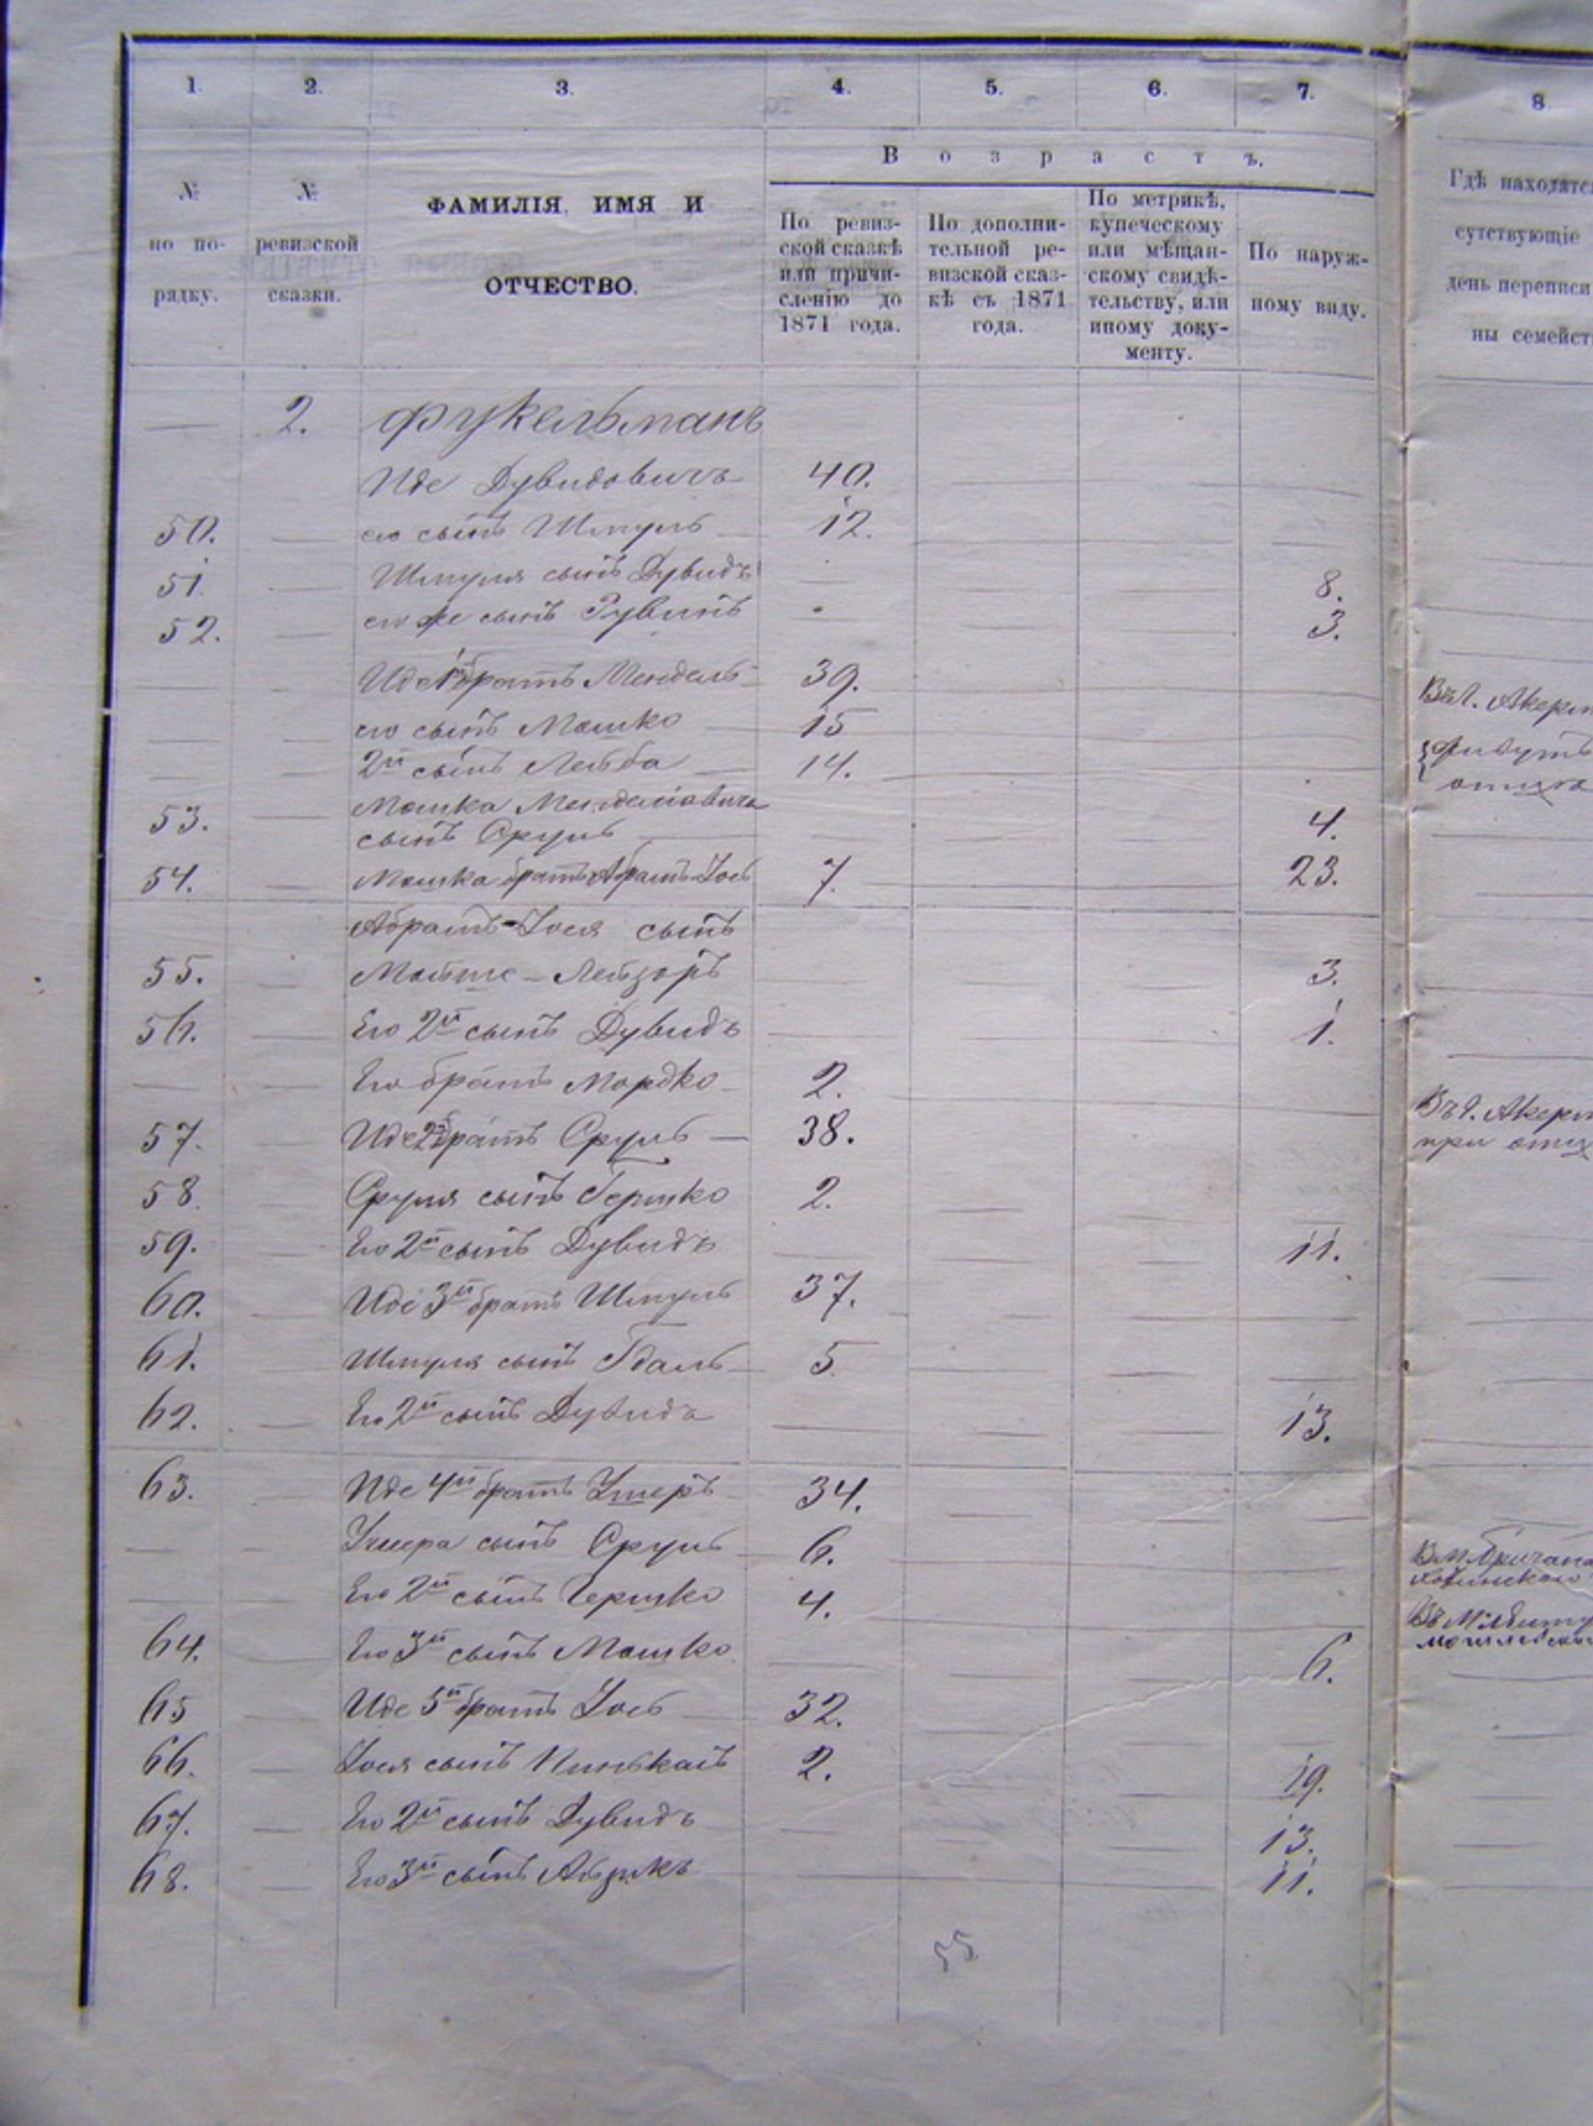 1. 2. 3. 4. 5. 6. 7. 8
В о з р а с т ъ.
№ по по-рядку.
№ ревизской сказки.
ФАМИЛІЯ, ИМЯ И
ОТЧЕСТВО.
По ревиз-
ской сказкѣ
или причи-
сленію до
1871 года.
По дополни-
тельной ре-
визской сказ-
кѣ съ 1871
года.
По метрикѣ,
купеческому
или мѣщан-
скому свидѣ-
тельству, или
иному доку-
менту.
По наруж-
ному виду.
Гдѣ находятс
сутствующіе
день переписи
ны семейст
— 2. Фукельманъ
Иде Дувидовичъ 40.
50. его сынъ Шмуль 12.
51. Шмуля сынъ Дувидъ 8.
52. его же сынъ Рувинъ 3.
Иде 1й братъ Мендель 39. Въ г. Акерм
его сынъ Мошко 15
2й сынъ Лейба 14.
Мошка Менделіовича
53. сынъ Сруль 4.
54. Мошка братъ Абрамъ-Іось 7. 23.
Абрамъ-Іося сынъ
55. Мойше-Лейзоръ 3.
56. Его 2й сынъ Дувидъ 1.
Его братъ Мордко 2. Въ г. Акерм
57. Иде 2й братъ Сруль 38. при отц
58. Сруля сынъ Гершко 2.
59. Его 2й сынъ Дувидъ 11.
60. Иде 3й братъ Шмуль 37.
61. Шмуля сынъ Гдаль 5.
62. Его 2й сынъ Дувидъ 13.
63. Иде 4й братъ Ушеръ 34.
Ушера сынъ Сруль 6. В м. Бричана
Его 2й сынъ Гершко 4.
64. Его 3й сынъ Мошко 6.
65 Иде 5й братъ Іось 32.
66. Іося сынъ Пинькасъ 2. 19.
67. Его 2й сынъ Дувидъ 13.
68. Его 3й сынъ 11.
55